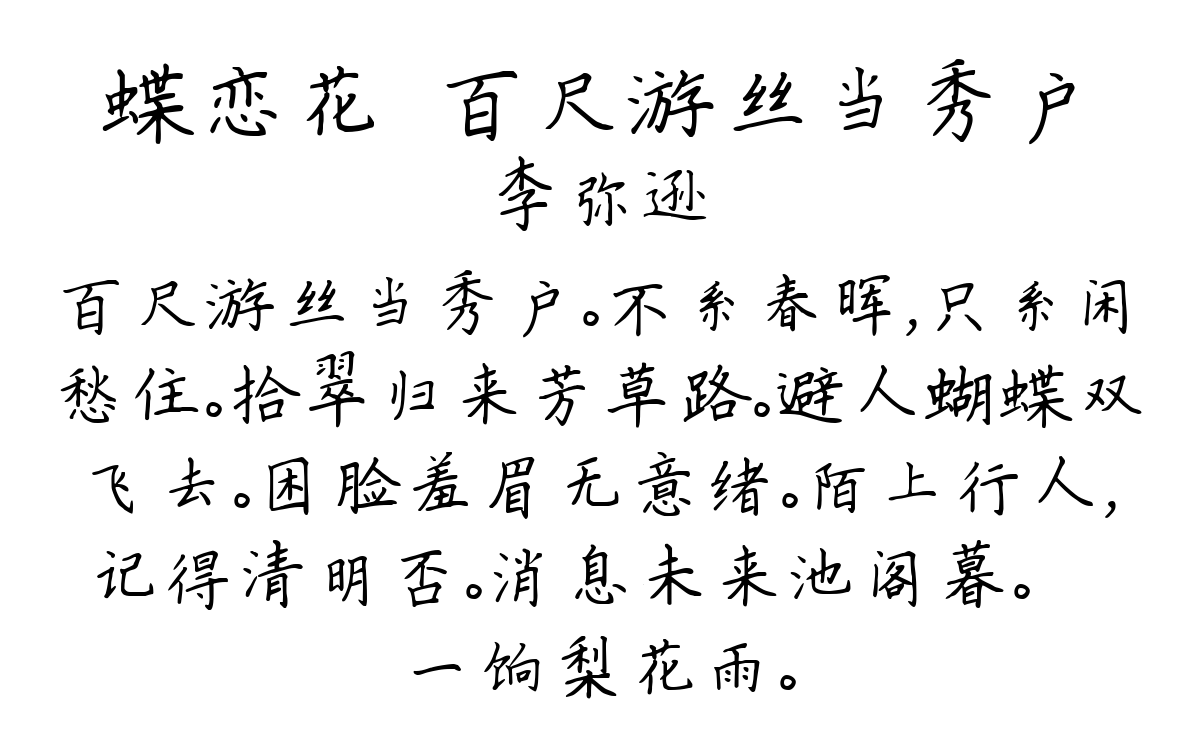 蝶恋花 百尺游丝当秀户
李弥逊
百尺游丝当秀户。不系春晖,只系闲
愁住。拾翠归来芳草路。避人蝴蝶双
飞去。困脸羞眉无意绪。陌上行人,
记得清明否。消息未来池阁暮。
一饷梨花雨。